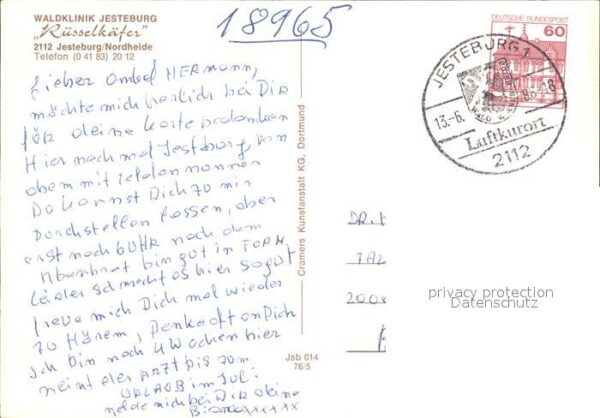 WALDKLINIK JESTEBURG
"Rüsselkäfer"
2112 Jesteburg/Nordheide
Telefon (0 41 83) 20 12
18965
DEUTSCHE BUNDESPOST
60
JESTEBURG 1
13.-6. 8 -18
Luftkurort
2112
Lieber Onkel HERMANN,
möchte mich herlich bei DIR
för deine Karte bedanken
Hier noch mal Jesteburg, von
oben mit
Du kannst Dich zo mir
Durchstellen lassen, aber
erst noch 6 UHR nach dem
Abenbrot bin gut in FORM
leider schmeckt es hier so gut
freue mich Dich mal wieder
zo Hören, Denke oft an Dich
ich bin noch 4 Wochen hier
meint der ARZT bis zom
URLAUB im Juli
melde mich bei DIR deine
xxxxx
Cramers Kunstanstalt KG, Dortmund
Jsb 014
76/5
DR.
200
privacy protection
Datenschutz